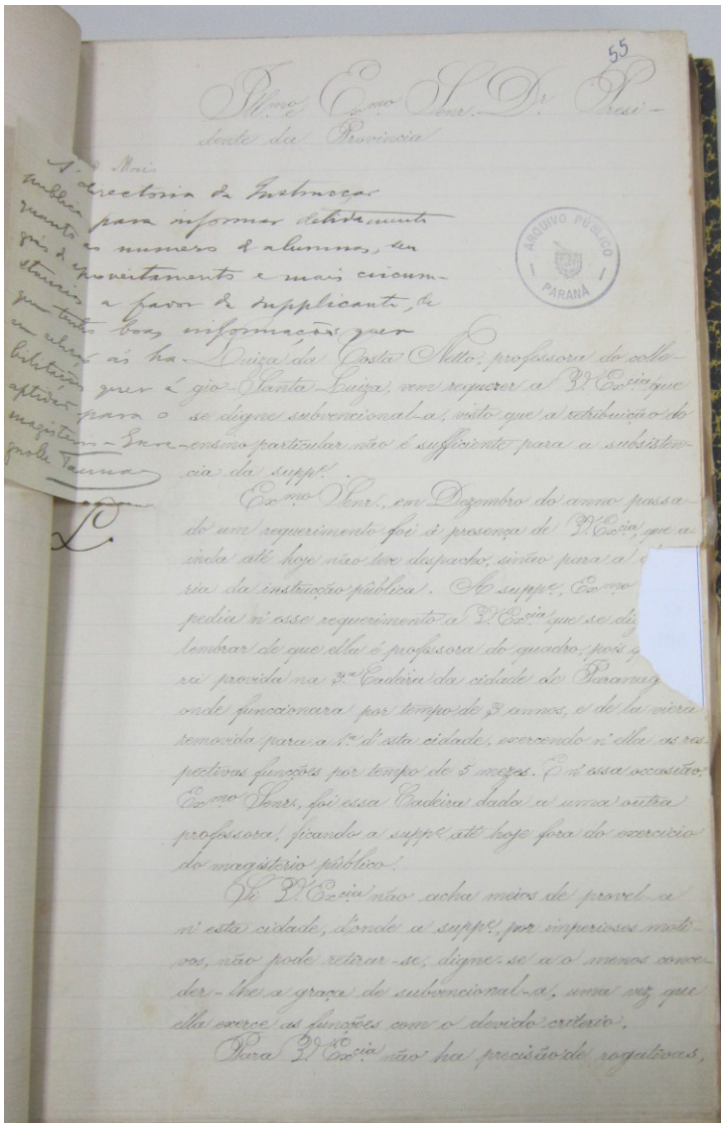 55
Illmo Exmo Senr. Dr. Presi-
dente da Provincia
A' directoria da Instrucção
publica para informar detidamente
quanto ao numero d alumnas, seu
gráo d aproveitamento e mais circum-
stancias a favor da supplicante, de
quem tenho boas informações quer
em relação ás ha-
bilitações quer á
aptidão para o
magisterio –
Taunay
ARQUIVO PÚBLICO
PARANÁ
Luiza da Costa Netto, professora do colle-
gio Santa Luiza, vem requerer a V. Excia que
se digne subvencional-a, visto que a retribuição do
ensino particular não é sufficiente para a subsisten-
cia da suppe.
Exmo Senr., em Dezembro do anno passa-
do um requerimento foi á presença de V. Excia, que a-
inda até hoje não teve despacho, sinão para a
ria da instrucção pública. A suppe, Exmo
pedia n'esse requerimento a V. Excia que se dig
lembrar de que ella é professora do quadro, pois q
ra provida na 3ª Cadeira da cidade de Paranag
onde funccionara por tempo de 3 annos, e de la viera
removida para a 1ª d'esta cidade, exercendo n'ella as res-
pectivas funcções por tempo de 5 mezes. E n'essa occasião,
Exmo Senr, foi essa Cadeira dada a uma outra
professora, ficando a suppe até hoje fora do exercicio
do magisterio público.
Si V. Excia não acha meios de provel-a
n'esta cidade, d'onde a suppe, por imperiosos moti-
vos, não pode retirar-se, digne-se a o menos conce-
der-lhe a graça de subvencional-a, uma vez que
ella exerce as funcções com o devido criterio.
Para V. Excia não ha precisão de rogativas,